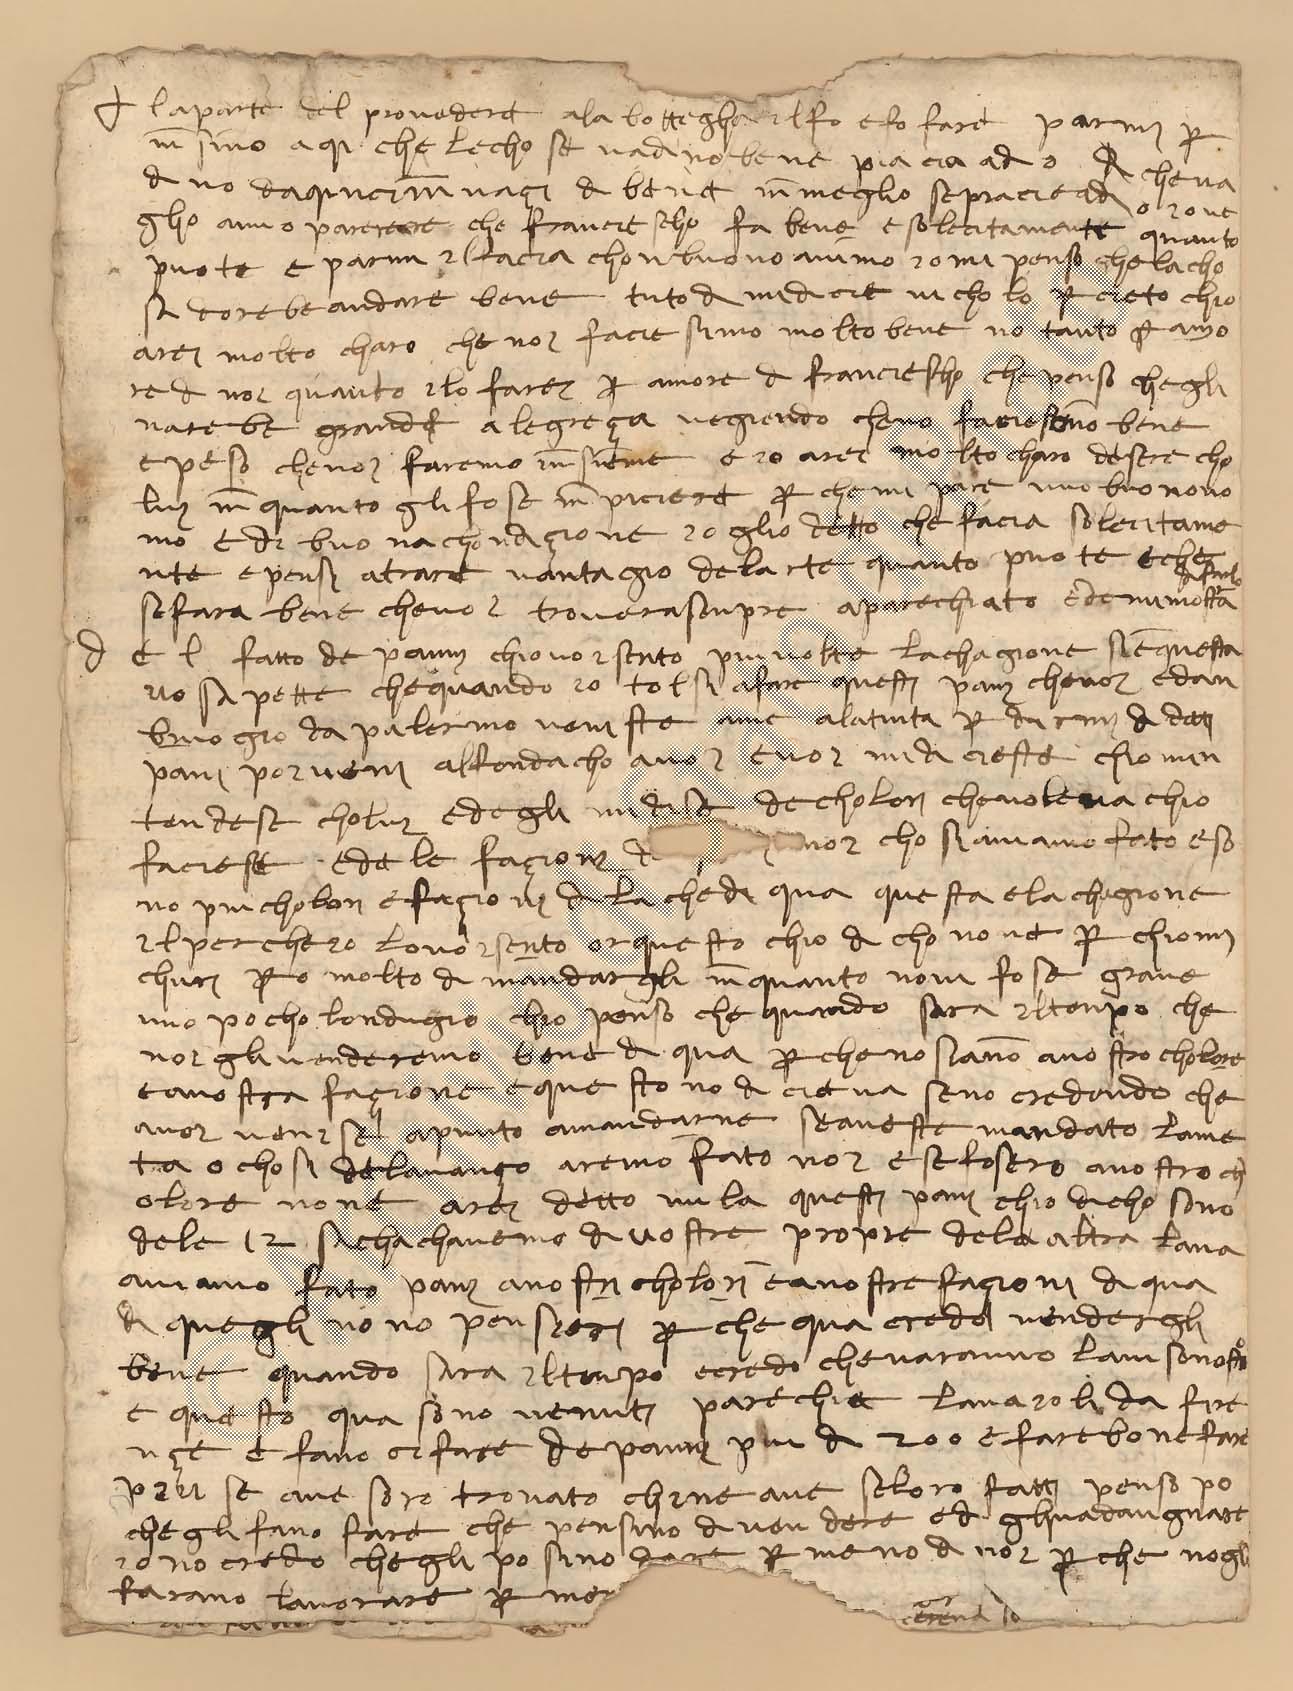 laparte del provedere ala bottegha ilfo efo fare parmi p
in sino aqi che lecho se vadino bene piacia ad o
di no daqui in naçi di bene in meglio sepiacie ad o io ve
gho animo parere che francie scho fa bene e solecitamente quanto
puote e parmi ilfacia chonbuono animo io mi penso chelacho
sa dorebeandare bene tuto di midicie nicholo p cieto chio
arei molto charo che noi facie simo moltobene no tanto p amo
re di noi quanto ilo farei p amore di franciescho che penso chegli
narebe grande alegreça vegiendo cheno faciesimo bene
e peso chenoi faremo insieme e io arei molto charo desere cho
lui in quanto gli fose in piciere p che mi pare uno buonouo
mo e di buo nachondiçione io glio detto che facia solecitame
nte e pensi atrare vantagio delarte quanto puote eche
sefara bene chevoi troverasenpre aparechiato
d e l fatto de panni chiovoisento piuvolte lachagione siequesta
vo sa pette chequando io tolsi afare questi pani chevoi edan
bruogio da palermo veniste ala tinta p di
pani poiveni alfondacho avoi evoi midicieste chiomin
tendese cholui edegli midise decholori chevoleva chio
faciese edele façioni noi cho siaviamo fato eso
no piucholori efaçioni di la chedi qua questa elachagione
ilperche io lovoisento orquesto chio dicho none p chiomi
churi p o molto di mandargli inquanto novi fose grave
uno pocholondugio chio penso che quando sara iltenpo che
noi glivenderemo bene di qua p chenosiano anostrocholore
eanostra façione equesto no diciena seno credendo che
avoi venise apunto amandarne seaveste mandato lame
ta o chosi delavanço aremo fato noi esefosero anostroch
olore none arei detto nula questi pani chio dicho sono
dele 12 sachachavemo divostre propre delaaltra lana
aviamo fato pani anostri cholori eanostrefaçioni di qua
di quegli nono pensieri p che qua credo vendergli
bene quando sara iltenpo ecredo chevaranno
e questo qua sono venuti parechie lanaioli da fire
nçe e fano efare depanni piu di 200 efarebonefare
piu se ave soro trovato chi ne ave seloro fatti penso po
chegli fano fare che pensino divendere ed ghuadangnare
io no credo chegli po sino dare p meno di noi p che nogli
farano lavorare p